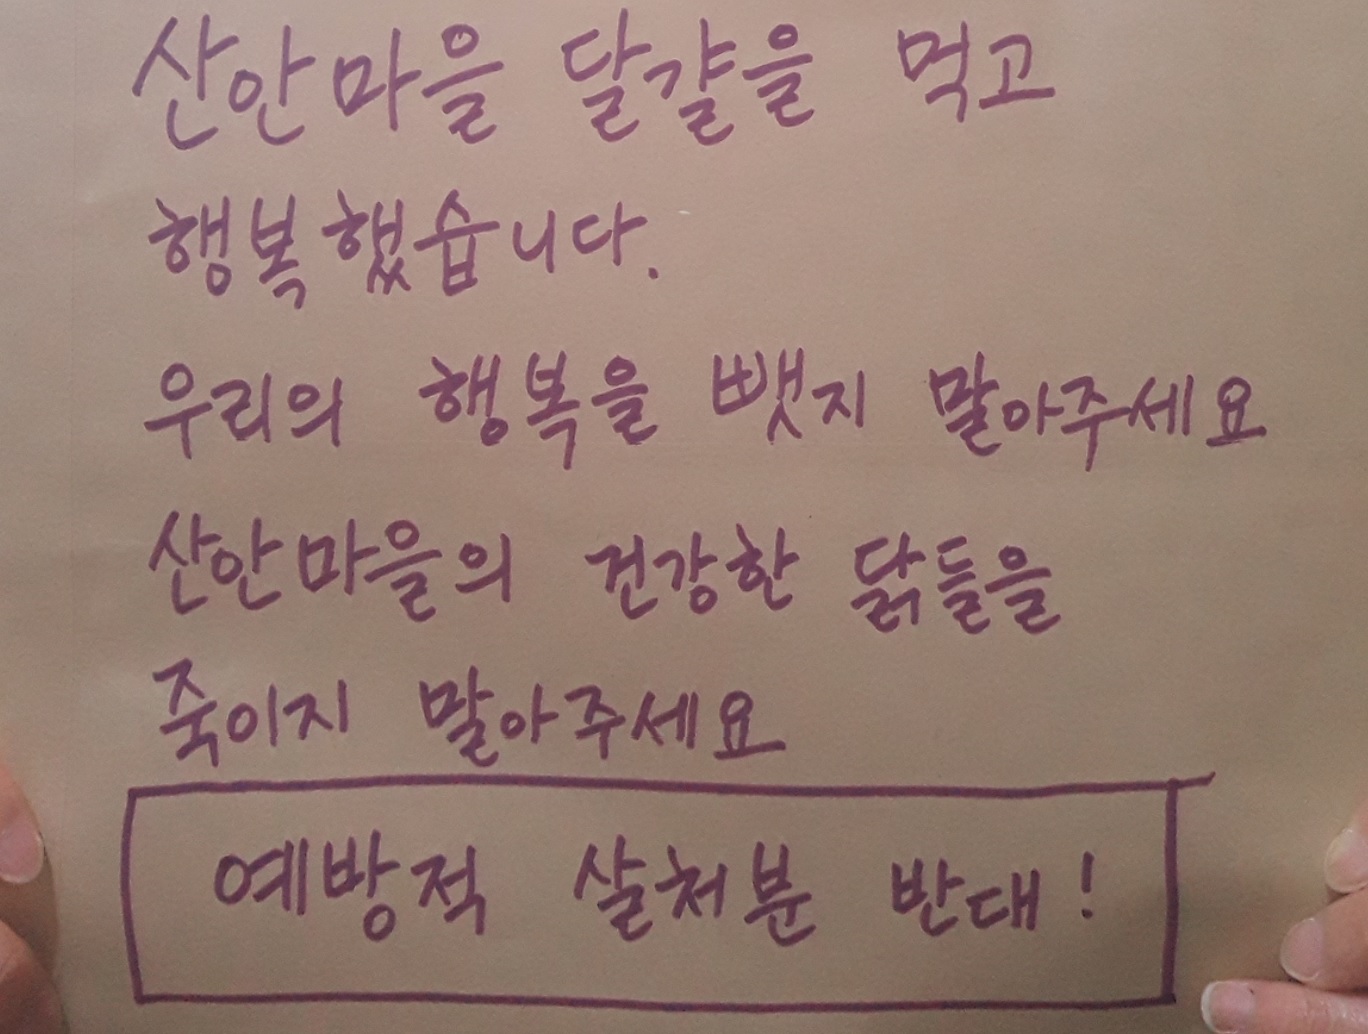 산안마을 달걀을 먹고
행복했습니다.
우리의 행복을 뺏지 말아주세요
산안마을의 건강한 닭들을
죽이지 말아주세요
예방적 살처분 반대!